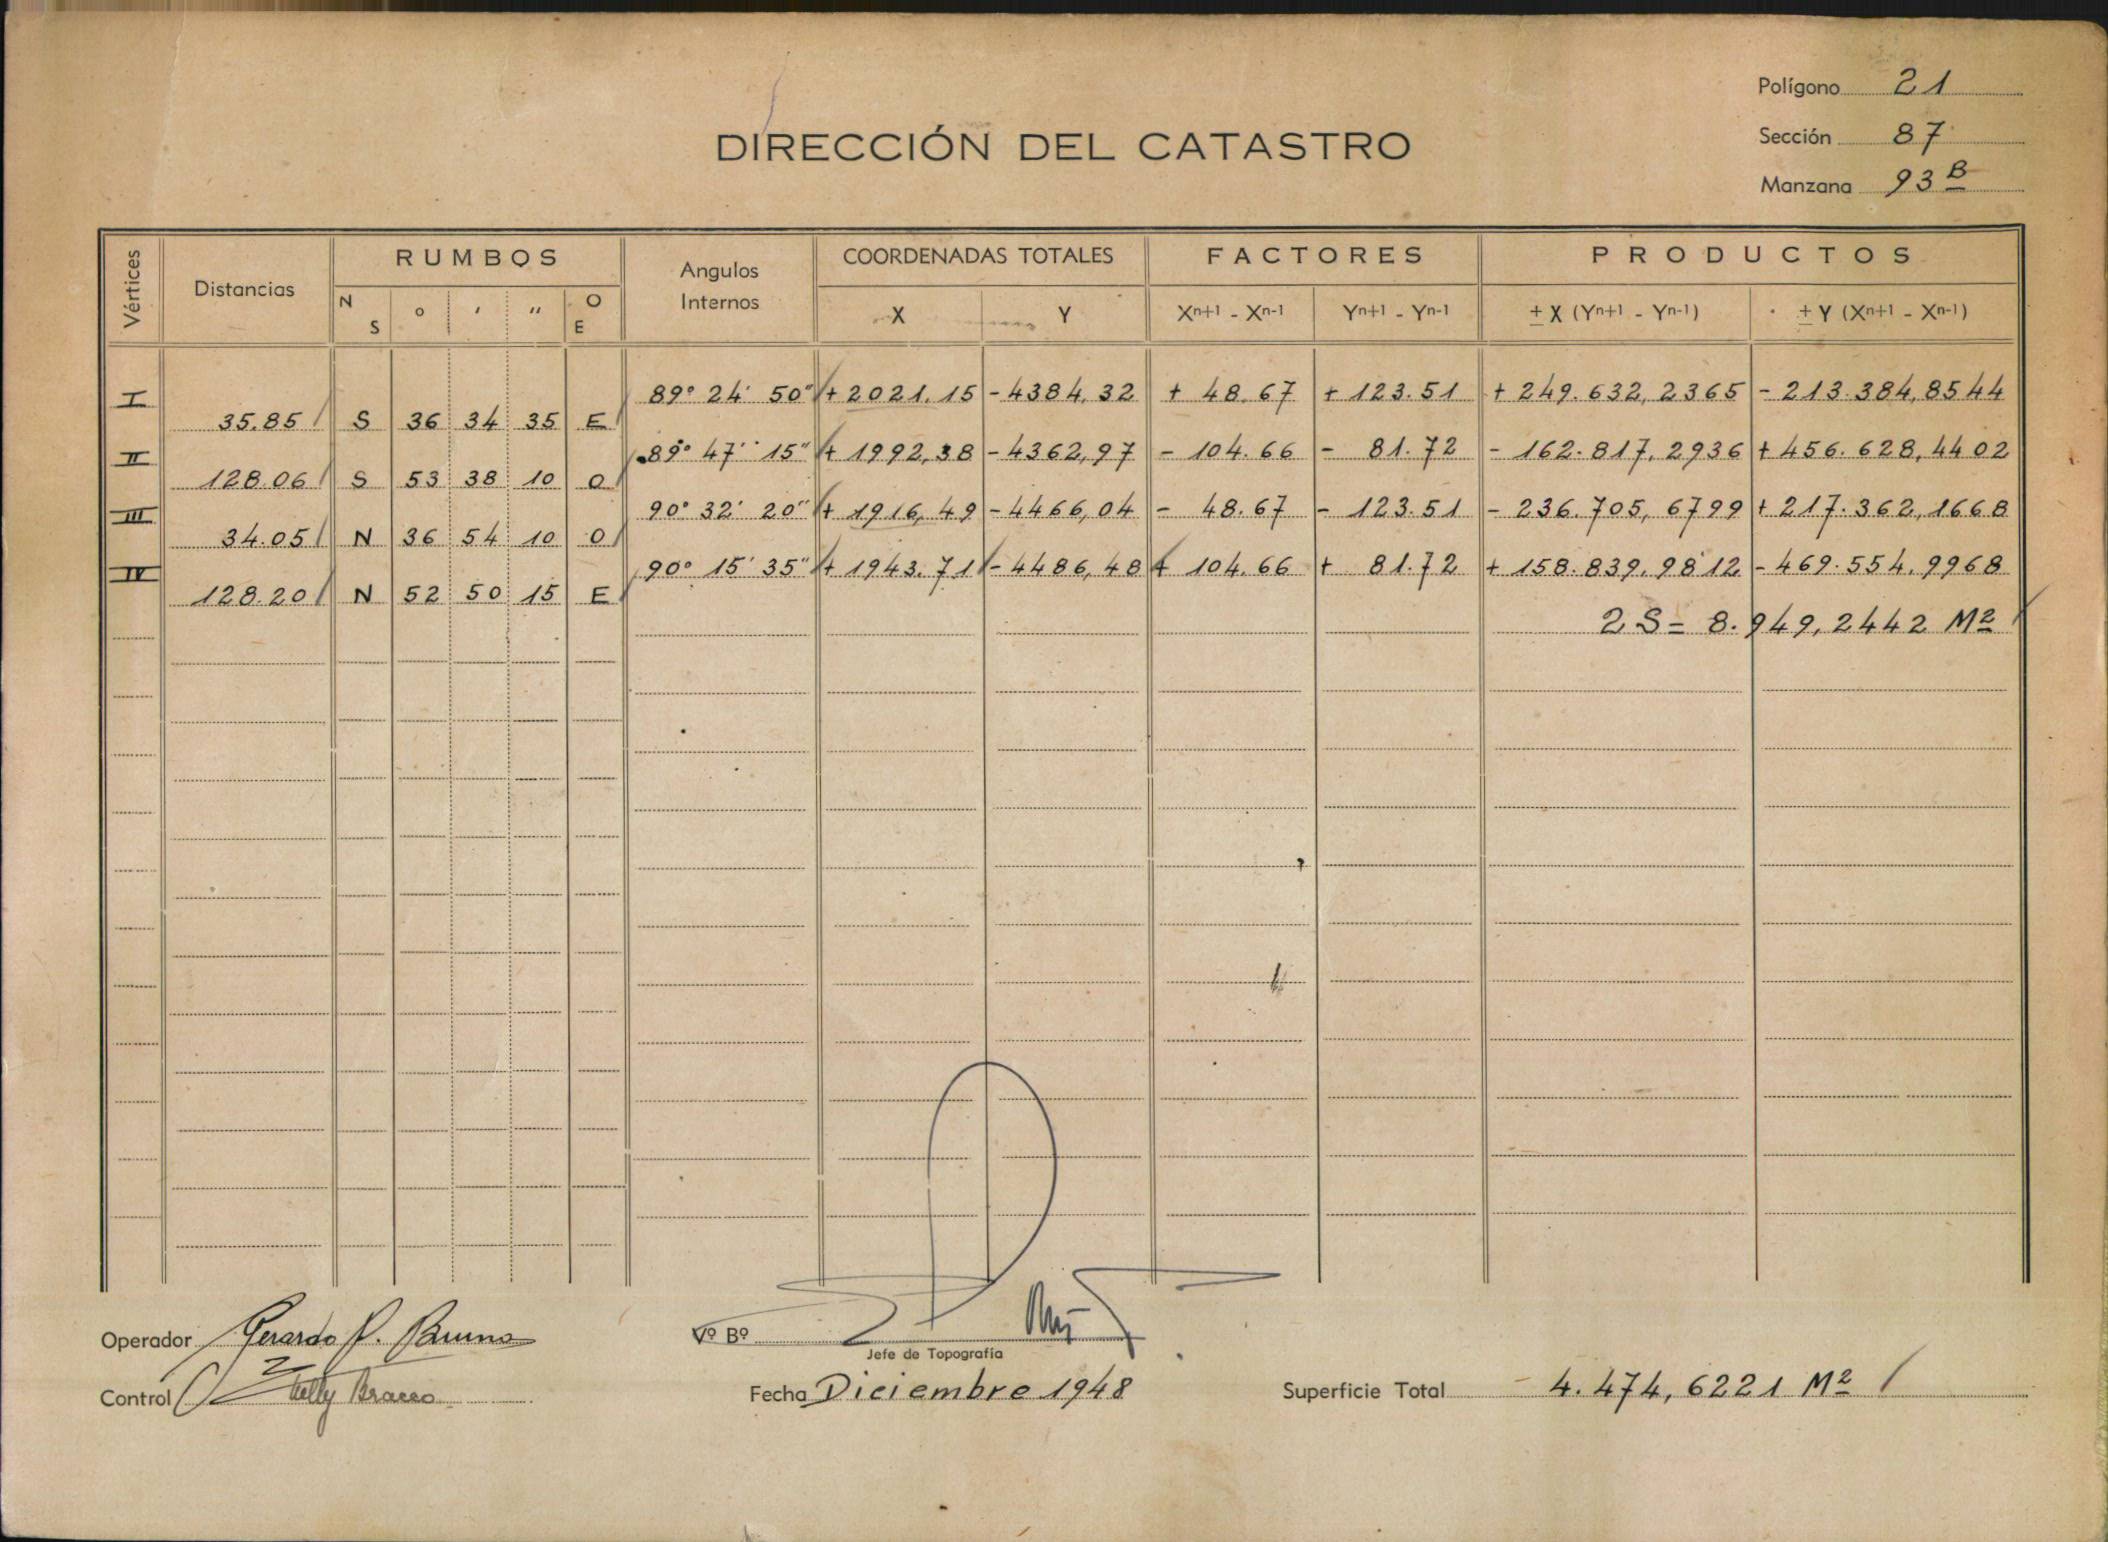 Polígono 21
DIRECCIÓN DEL CATASTRO
Sección 87
Manzana 93 B
Vértices Distancias RUMBOS Angulos Internos COORDENADAS TOTALES FACTORES PRODUCTOS
N S ° ' " O E X Y Xn+1 - Xn-1 Yn+1 - Yn-1 ± X (Yn+1 - Yn-1) ± Y (Xn+1 - Xn-1)
I 89° 24' 50" + 2021.15 - 4384,32 + 48.67 + 123.51 + 249.632,2365 - 213.384,8544
35.85 S 36 34 35 E
II 89° 47' 15" + 1992,38 - 4362,97 - 104.66 - 81.72 - 162.817,2936 + 456.628,4402
128.06 S 53 38 10 O
III 90° 32' 20" + 1916,49 - 4466,04 - 48.67 - 123.51 - 236.705,6799 + 217.362,1668
34.05 N 36 54 10 O
IV 90° 15' 35" + 1943.71 - 4486,48 + 104.66 + 81.72 + 158.839,9812 - 469.554,9968
128.20 N 52 50 15 E
2 S = 8.949,2442 M²
Operador Gerardo P. Bruno
Vº Bº
Jefe de Topografía
Control Nelly Bracco
Fecha Diciembre 1948
Superficie Total 4.474,6221 M²